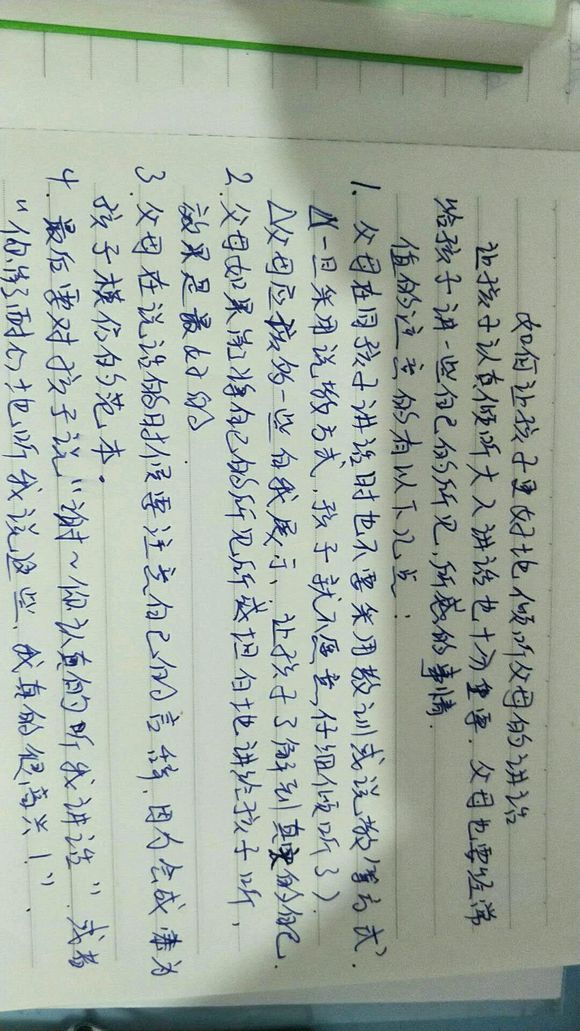 如何让孩子更好地倾听父母的讲话
让孩子认真倾听大人讲话也十分重要. 父母也要经常
给孩子讲一些自己的所见,所感的事情.
值的注意的有以下几点:
1. 父母在同孩子讲话时也不要采用教训或说教等方式.
(一旦采用说教方式,孩子就不愿意,仔细倾听了).
父母应该的一些自我展示,让孩子了解到真实的自己.
2. 父母如果能将自己的所见所感坦白地讲给孩子听,
效果是最好的.
3. 父母在说话的时候要注意自己的言辞.因为会成为
孩子模仿的范本。
4. 最后要对孩子说"谢~你认真的听我讲话",或者
"你能耐心地听我说这些,我真的很高兴!".